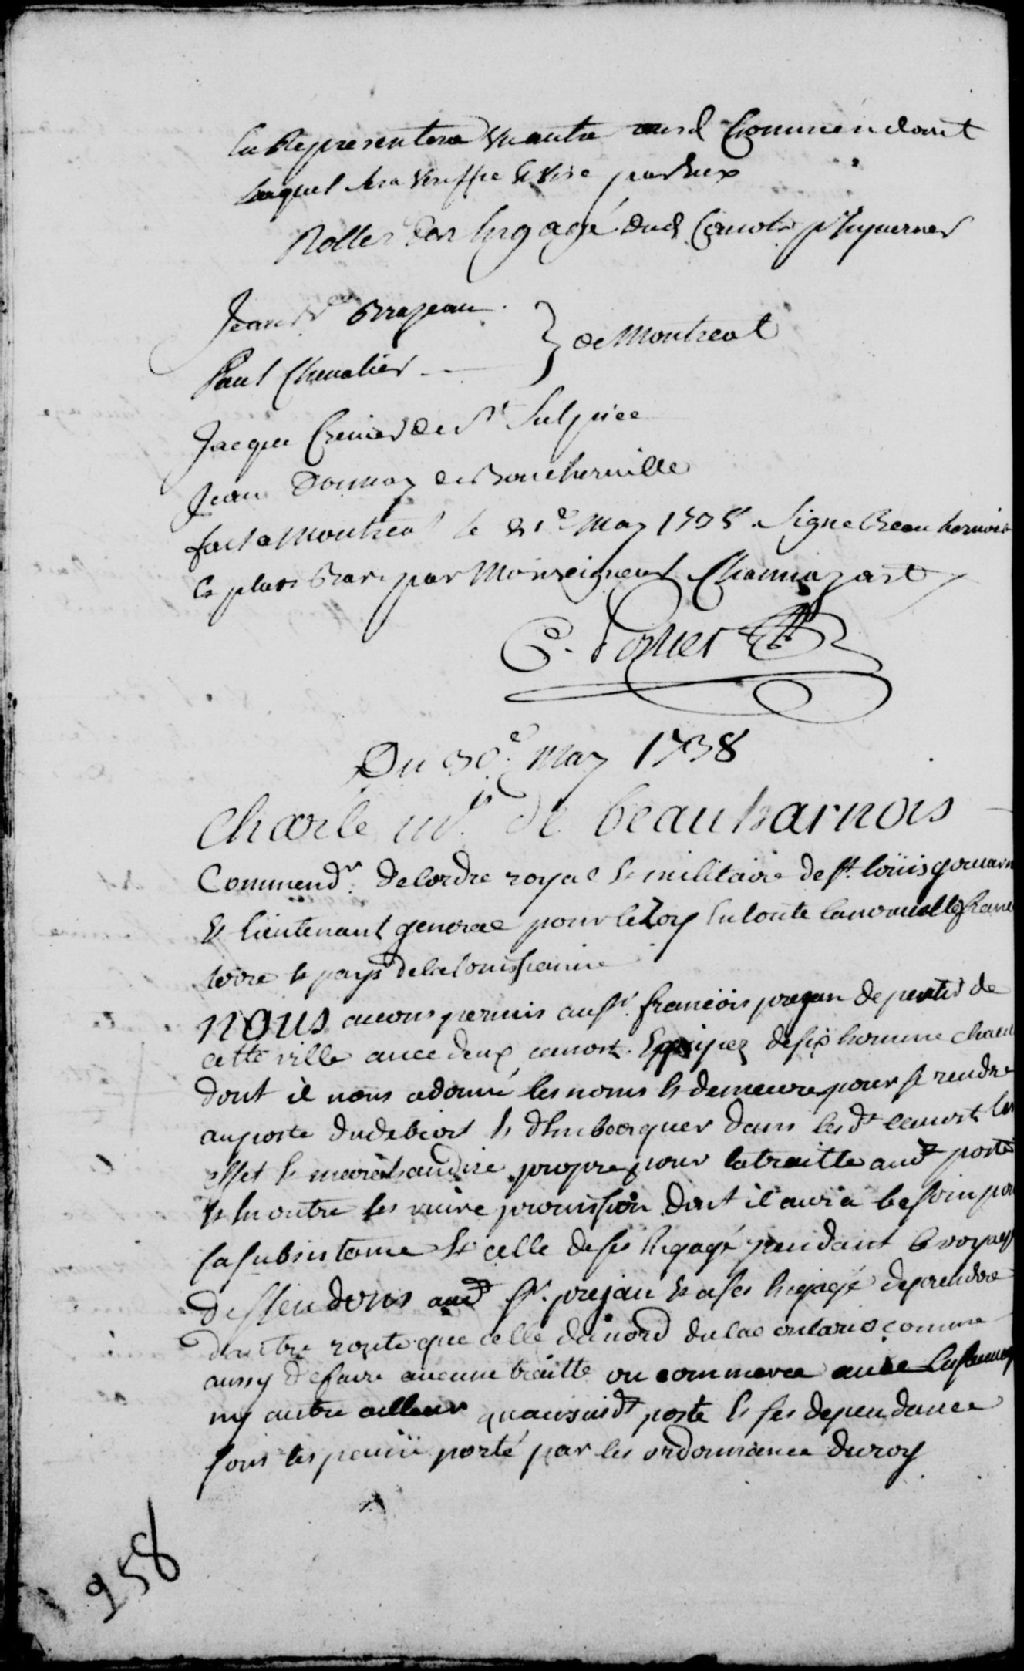 En Representera un autre aud Commendant
laquel sera veriffie & vise par eux
Rolle des Engagé dud Canot
Jean Bte Brazeau
Paul Chevalier } de Montreal
Jacque Crenier de St Sulpice
Jean Daunay de Boucherville
fait a Montreal le 21e May 1738. Signe Beauharnois
Et plus bas par Monseigneur Chaumazart
C. Porlier
Du 30e May 1738
Charle mis de beauharnois
Commendr. de lordre royal & militaire de st. loüis gouvern
& lieutenant general pour le Roy en toute la nouvelle france
terre & pays de la louissianne
nous avons permis au sr. francois prejan de partir de
cette ville avec deux canost Equipez de six homme chacun
dont il nous a donné les noms & demeure pour se rendre
au poste du detroit & dembarquer dans lesdt canost les
effet & marchandise propre pour la traitte audt poste
& en outre les vivre provission dont il aura besoin pour
sa subsistance & celle de ses Engagé pendant le voyage
Deffendons audt sr. prejan & a ses Engagé de prendre
dautre route que celle du nord du lac ontario comme
aussy de faire aucune traitte ou commerce avec
ny autre ailleur quaususdt poste & ses dependance
sous les peinne porté par les ordonnance du roy
258